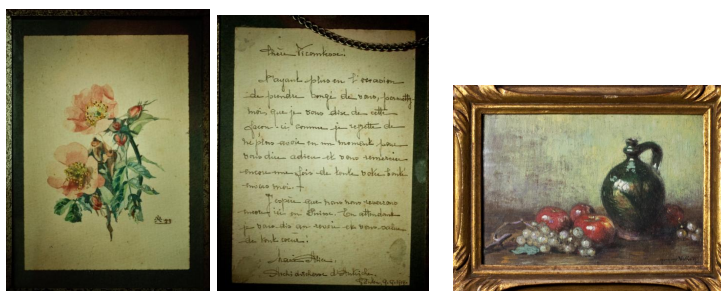 Chère Vicomtesse.
N'ayant plus eu l'occasion
de prendre congé de vous, permettez
moi que je vous dise de cette
façon-ci comme je regrette de
ne plus avoir eu un moment pour
vous dire adieu et vous remercier
encore une fois de toute votre bonté
envers moi!
J'espère que nous nous reverrons
en Suisse. En attendant
je vous dis au revoir et vous salue
de tout coeur.
Archiduchesse d'Autriche